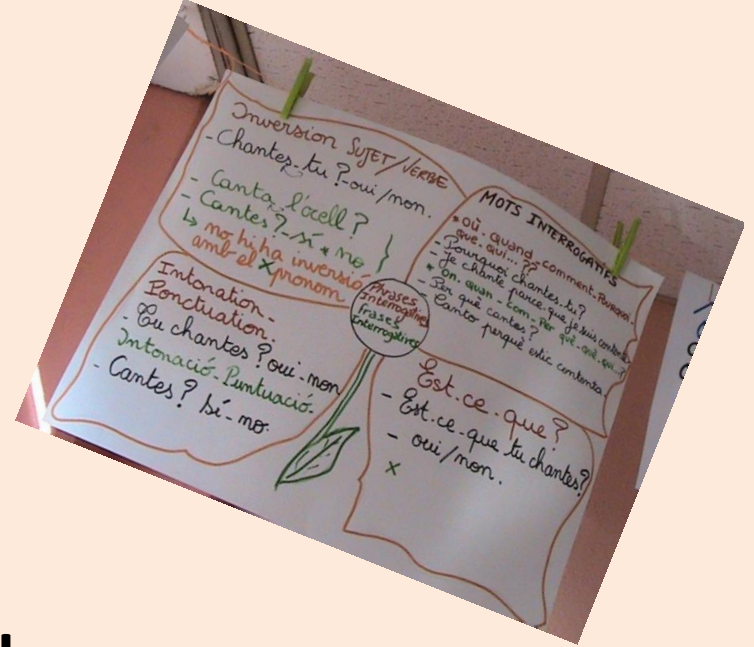 Inversion SUJET/VERBE
- Chantes-tu? - oui/non.
- Canta l'ocell?
- Cantes? - sí * no
↳ no hi ha inversió
amb el x pronom
MOTS INTERROGATIFS
* où - quand - comment - Pourquoi -
que - qui...??
- Pourquoi chantes-tu?
- Je chante parce-que je suis contente
* On - quan - com - Per què - què - qui...?
- Per què cantes?
- Canto perquè estic contenta
Phrases
Interrogatives
Frases
Interrogatives
Intonation -
Ponctuation.
- Tu chantes? oui - non
Intonació - Puntuació.
- Cantes? Sí - no.
Est-ce-que?
- Est-ce-que tu chantes?
- oui/non.
x